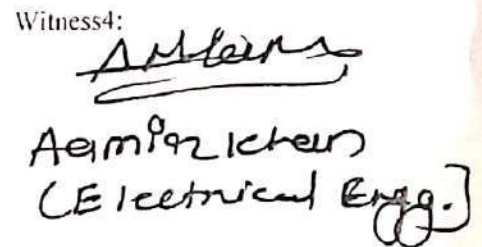 Witness4:
Aamir khan
(Electrical Engg.)